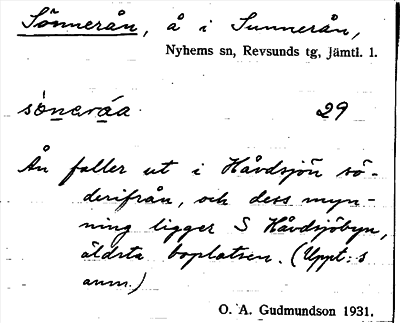 Sönnerån, å i Sunnerån,
Nyhems sn, Revsunds tg, Jämtl. l.
sònəráa 29
Ån faller ut i Håvdsjön sö-
derifrån, och dess myn-
ning ligger S Håvdsjöbyn,
äldsta boplatsen. (Uppt:s
anm.)
O. A. Gudmundson 1931.